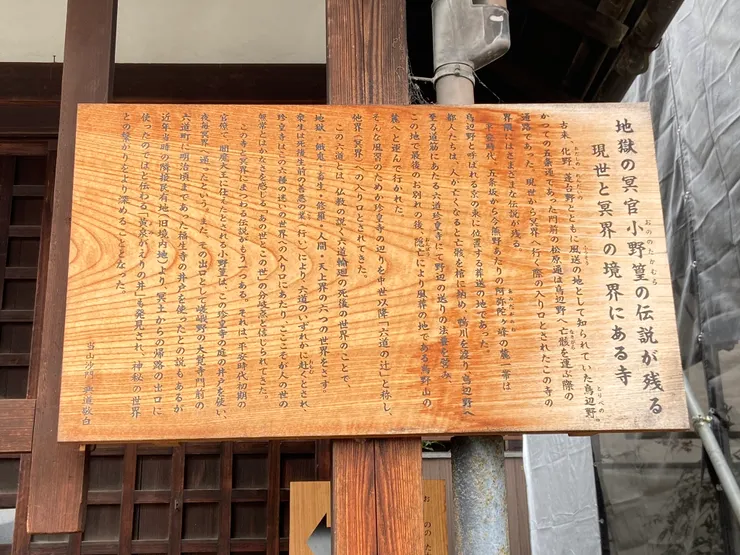 地獄の冥官小野篁の伝説が残る
おののたかむら
現世と冥界の境界にある寺
古来、化野、蓮台野とともに風送の地として知られていた鳥辺野。
とりべの
かつての五条通であった門前の松原通は鳥辺野へ亡骸を運ぶ際の
なきがら
通路であった。現世から冥界へ行く際の入り口とされたこの寺の
界隈にはさまざまな伝説が残る。
平安時代、五条坂から今熊野あたりの阿弥陀ヶ峰の麓一帯は
鳥辺野と呼ばれる京の東に位置する葬送の地であった。
都人たちは、人が亡くなると亡骸を棺に納め、鴨川を渡り鳥辺野へ
至る道筋にあたる六道珍皇寺にて野辺の送りの法要を営み、
この地で最後のお別れの後、隠亡により風葬の地である鳥野山の
麓へと運んで行かれた。
そんな風習のためか珍皇寺の辺りを中世以降「六道の辻」と称し、
他界(冥界)への入り口とされてきた。
この「六道」とは、仏教の説く六道輪廻の死後の世界のことで、
地獄・餓鬼・畜生・修羅・人間・天上界の六つの世界をさす。
衆生は死後生前の善悪の業(行い)により、六道のいずれかに赴くとされ、
珍皇寺はこの六種の迷いの世界への入り口にあたり、ここそが人の世の
無常とはかなさを感じる「あの世とこの世」の分岐点と信じられてきた。
この寺に冥界にまつわる伝説がもう一つある。それは、平安時代初期の
官僚で、閻魔大王に仕えたとされる小野篁は、この珍皇寺の庭の井戸を使い、
夜毎冥界へ通ったという。また、その出口として嵯峨野の大覚寺門前の
六道町に明治頃まであった福生寺の井戸を使ったとの説もあるが
近年当時の隣接民有地(旧境内地)より、冥土からの帰路の出口に
使ったのではと伝わる「黄泉がえりの井」も発見され、神秘の世界
との繋がりをより深めることとなった。
当山沙門
敬白